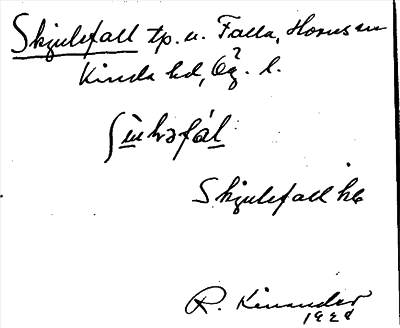 Skjulefall tp. u. Falla, Hornsen
Kinda hd, Ög. l.
Skjulefall
R. Kinander
1928